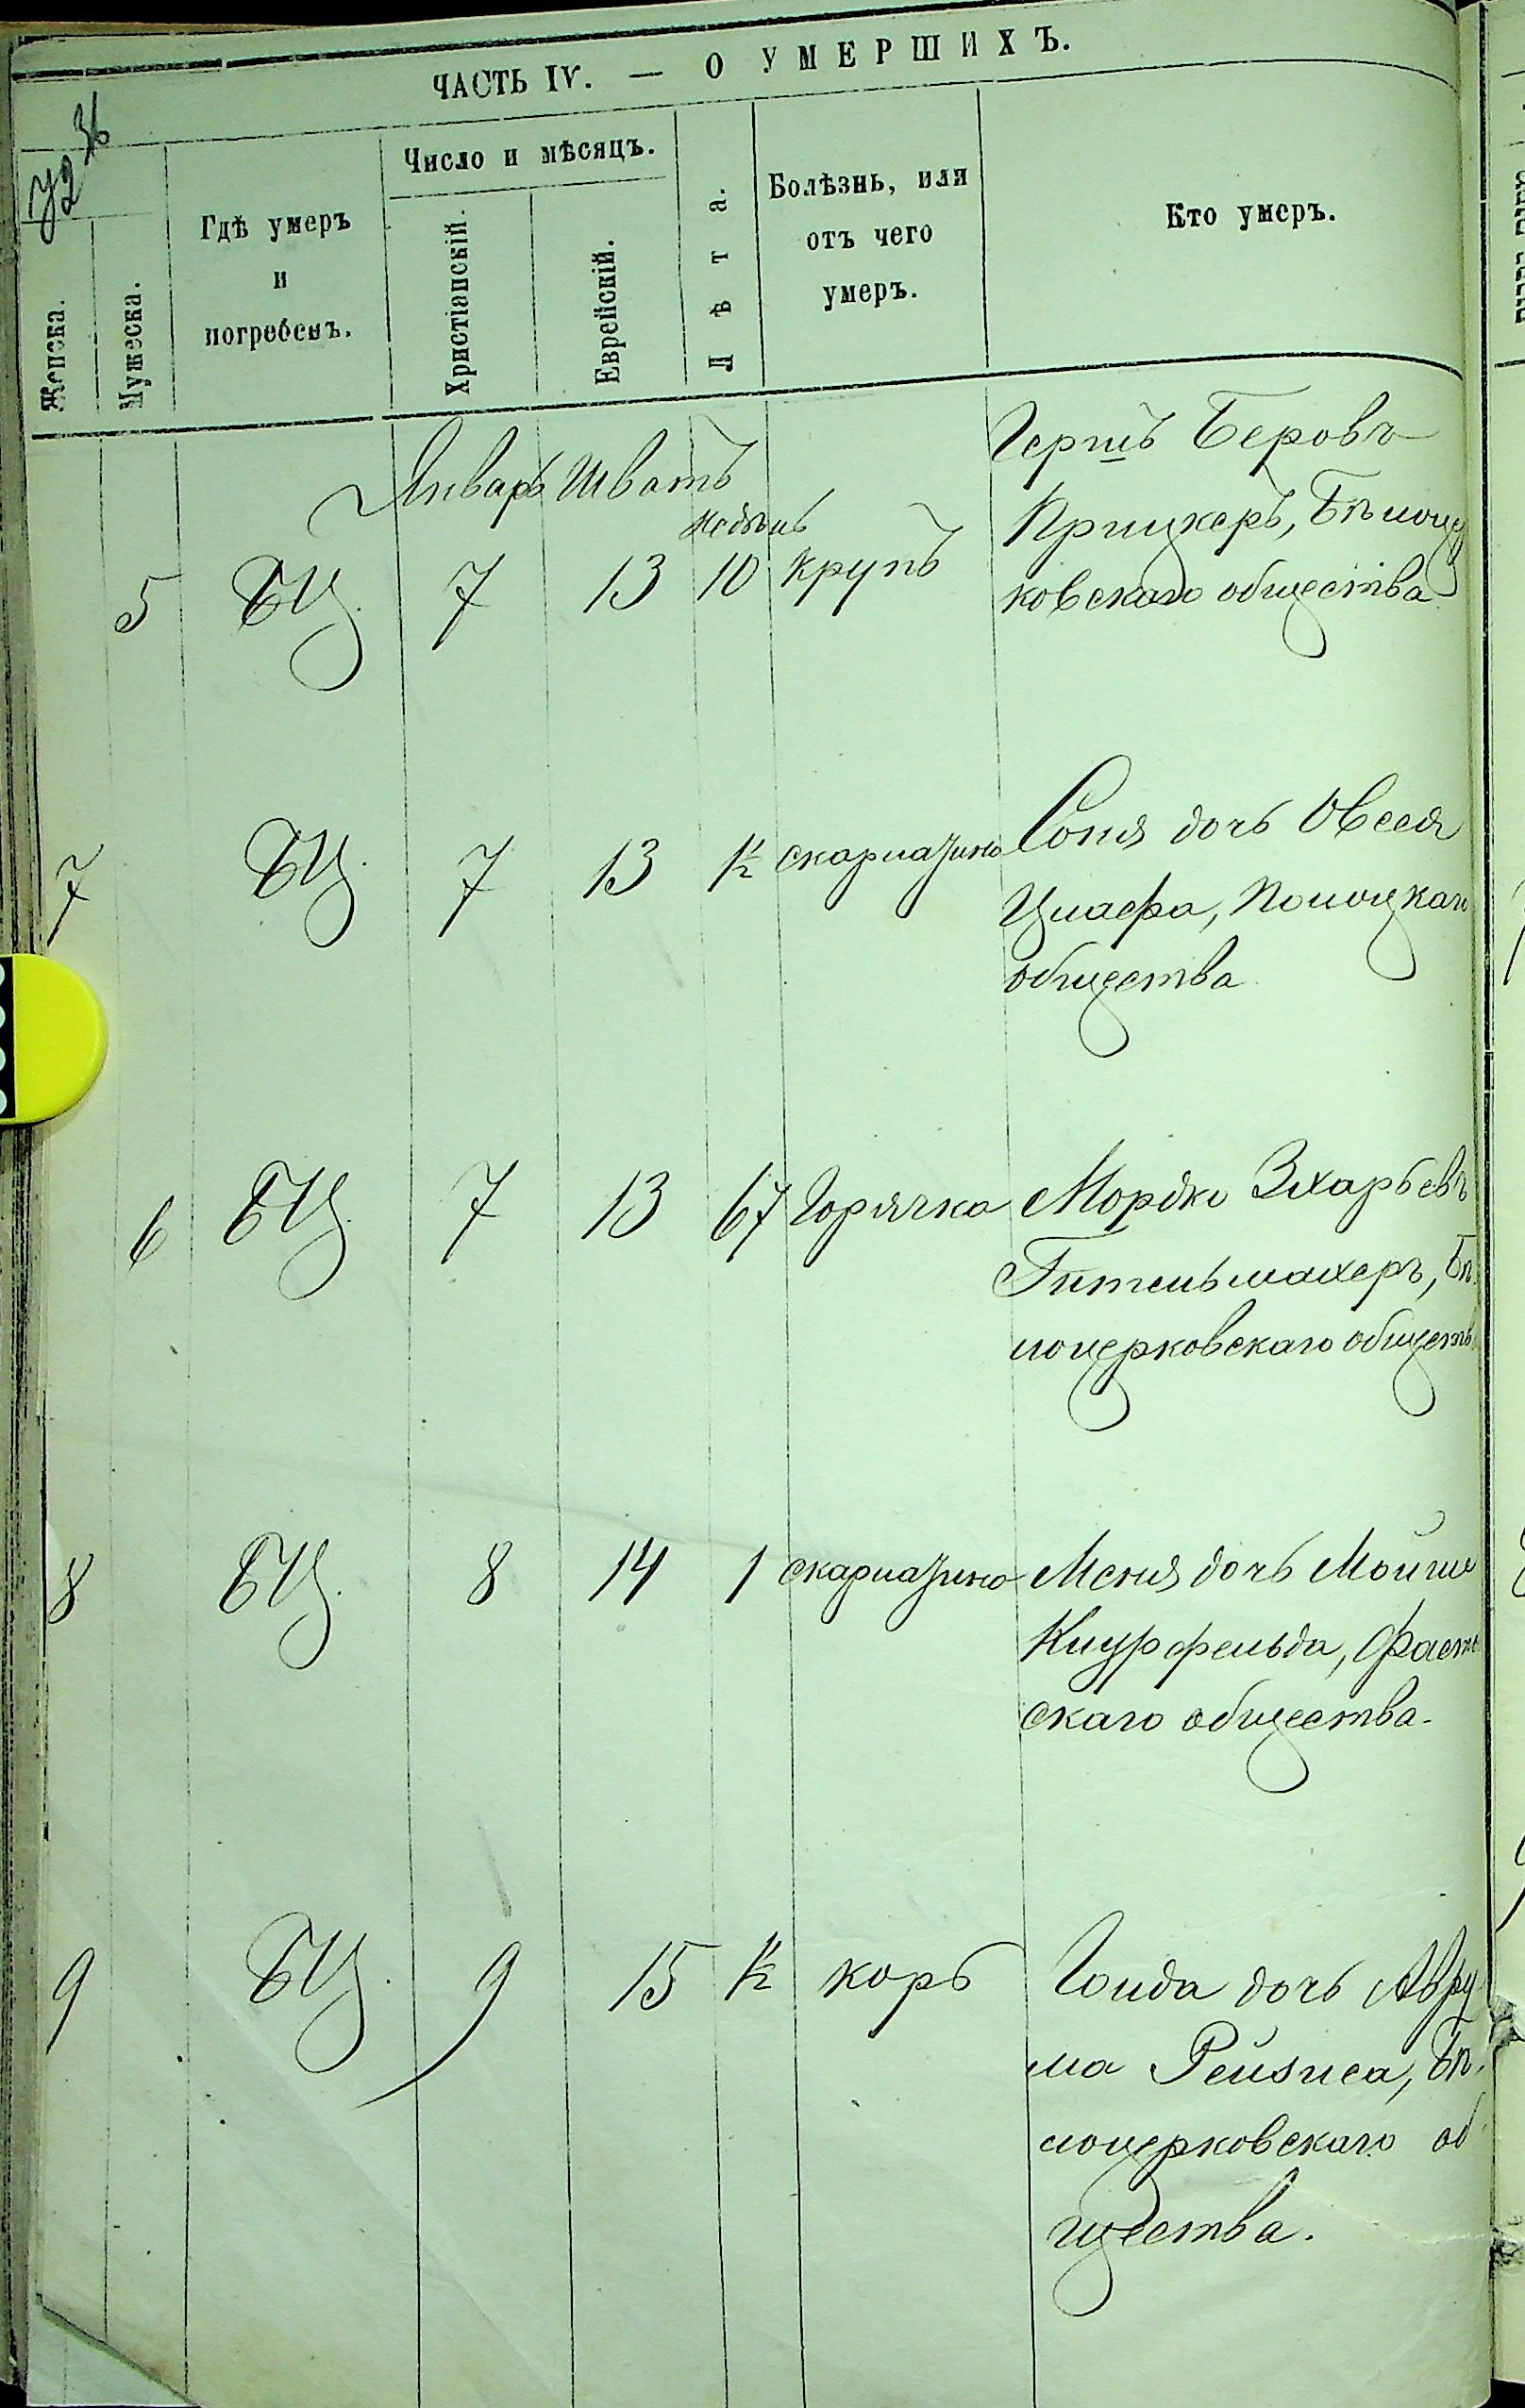 ЧАСТЬ IV. — О УМЕРШИХЪ.
36
Женска.
Мужеска.
Гдѣ умеръ
и
погребенъ.
Число и мѣсяцъ.
Христіанскій.
Еврейскій.
Лѣта.
Болѣзнь, или
отъ чего
умеръ.
Кто умеръ.
Январь Шватъ
Гершъ Беровъ
недѣль
Прицкеръ, Бѣлоцер
5 БЦ. 7 13 10 крупъ ковскаго общества
7 БЦ. 7 13 ½ скарлатина Соня дочь Овсея
Цлафа, Полоцкаго
общества
6 БЦ. 7 13 67 Горячка Мордко Зхарьевъ
Гительмахеръ, Бѣ
лоцерковскаго обществ
8 БЦ. 8 14 1 скарлатина Меня дочь Мойше
фельда, Фаст
скаго общества.
9 БЦ. 9 15 ½ корь Голда дочь Авру
ма Рейзиса, Бѣ
лоцерковскаго об
щества.